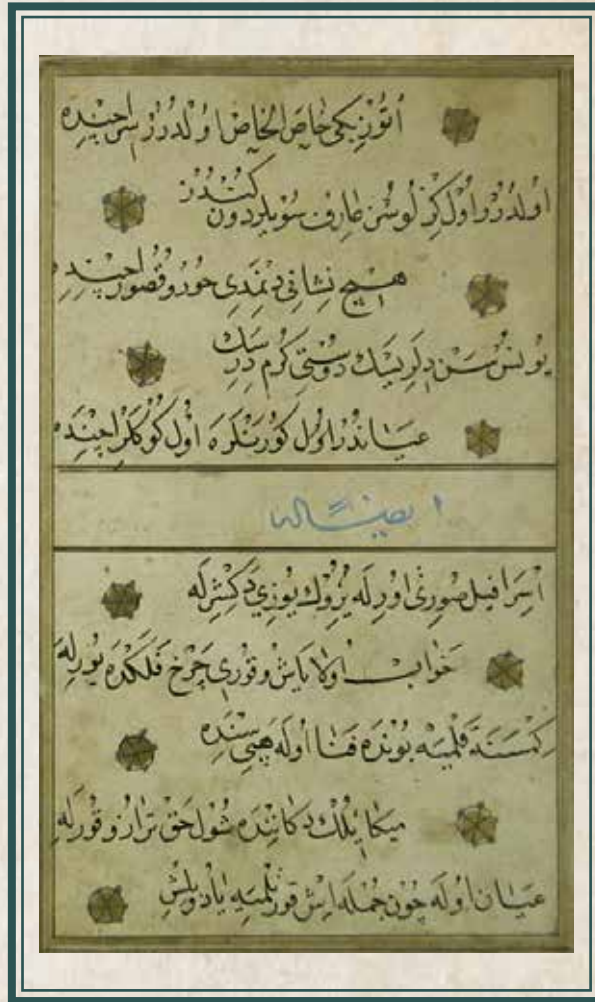 اُتُوزْ ایکی خَاصُ الخَاصْ اُولْدُرُرْ سِرْ اِچِنْدَه
اُولْدُرُرْ اُولْ كِزْلُوسُنْ عَارِفْ سُویْلَرْ دُونْ كُنْدُزْ
هِیچْ نِشَانِی دِنْمَدِی حُورُ و قُصُورْ اِچِنْدَه
یُونُسْ سَنْ دِلَرْیسَكْ دُوسْتِی كُرَمْ دِرْسَكْ
عَیَانْدُرْ اُولْ كُورَنْلَرَه اُولْ كُوكُلْلَرْ اِچِنْدَه
ایضًا لها
اِسْرَافِیلْ صُورِنی اُورِلَه یَرُوكْ یُوزِی دَكْشِرِلَه
خَرابْ اُولَا یَاشْ و قُورِی چَرْخِ فَلَكْدَه یُورِلَه
كِمْسَنَه قَلْمَیَه بُونْدَه فَنَا اُولَه هَپِی سِنْدَه
مِیكَائِلُكْ دُكَانِنْدَه شُولْ حَقْ تَرَازُو قُورِلَه
عَیَانْ اُولَه چُونْ جُمْلَه اِیشْ قُورْتُلْمَیَه یَادْ و بِلِشْ